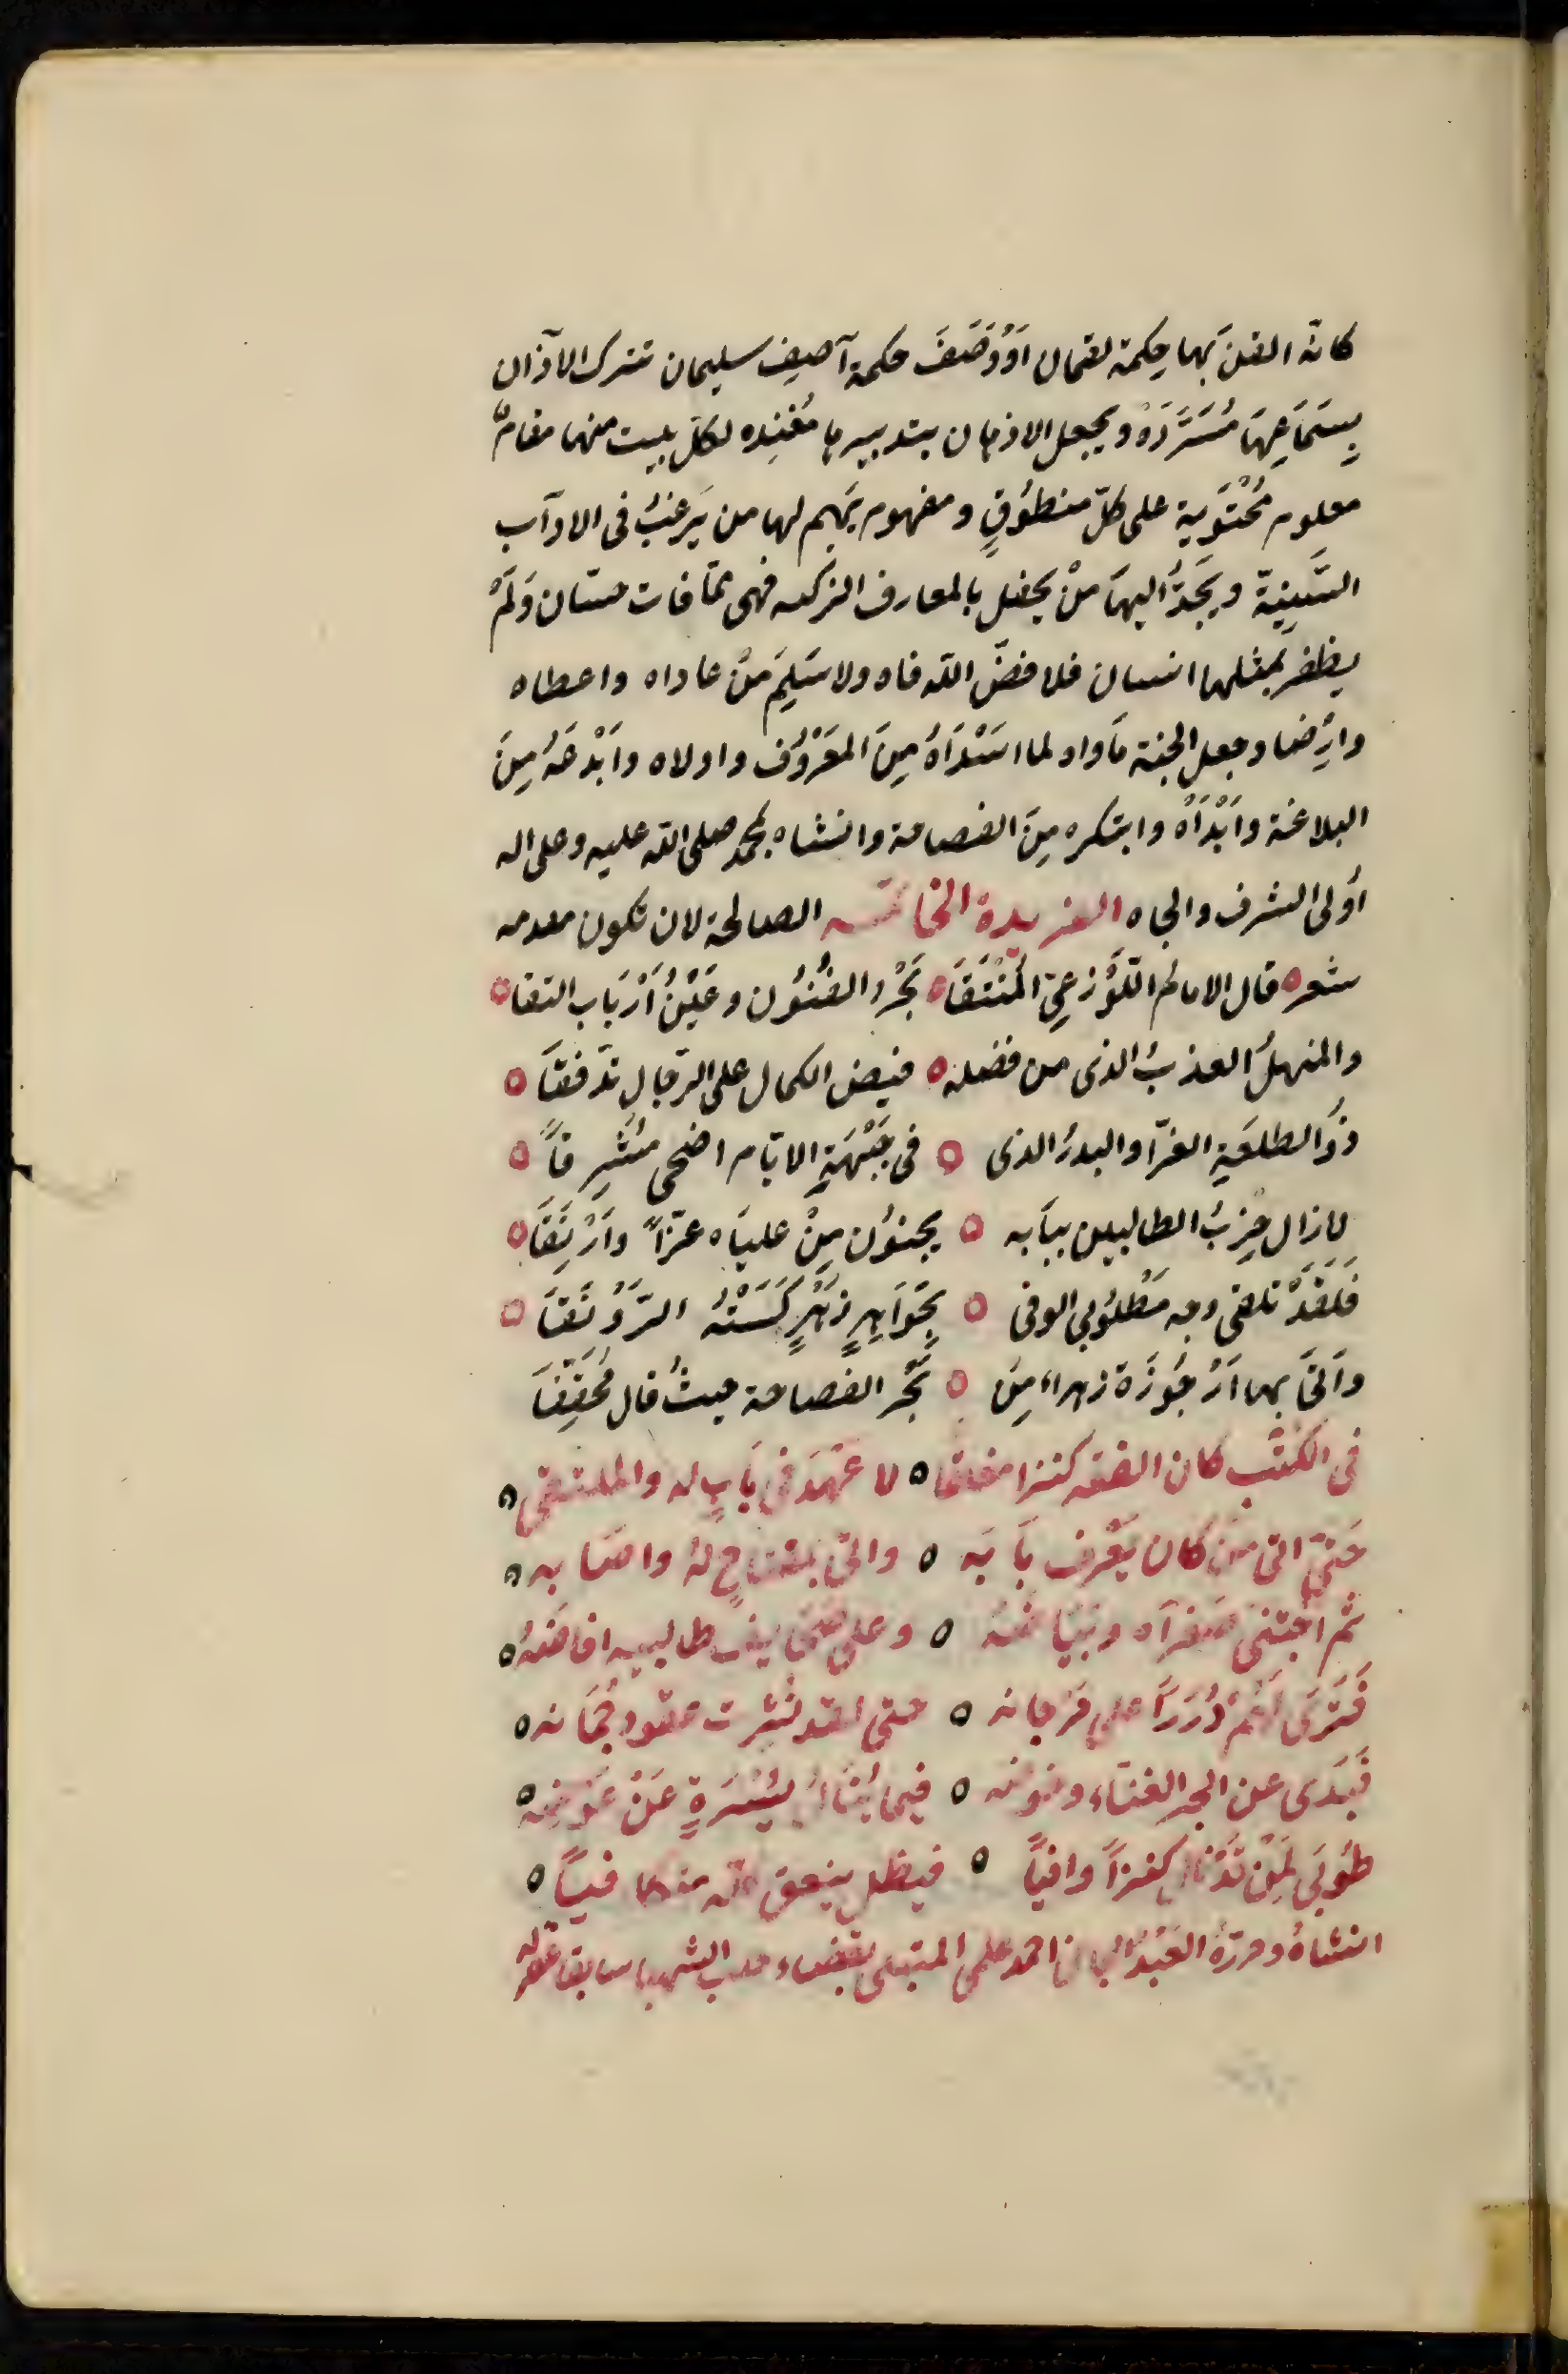 كانّه القنَ بها حِكمة لقمان اَوْوَصَفَ حكمة آصيف سليمان تترك الاۤذان
بِسَمَاعِهَا مُسَرَّدَةْ ويجعل الاذهان بتدبيرها مُفَنِده لكلّ بيت منها مقامٌ
معلوم مُحْتَوية على كلّ منطوُقٍ ومفهوم يَهِم لها من يَرغبُ فى الادآب
السَّنِيّة ويَجَدُّ اليهَا مَنْ يحفل بالمعارف الزكيه فهى ممّا فات حسّان وَلَمْ
يظفر بمثلها انسان فلا فضّ اللّه فاه ولا سَلِمَ مَنْ عاداه واعطاه
وارضاه وجعل الجنة مَأواه لما اسَدْاَهُ مِنَ المَعْرُوُف واولاه واَبْدعَهُ مِنَ
البلاغة واَبْدَاْه وابتكره مِنَ الفصاحة وانشاه بمحمد صلى اللّه عليه وعلى اله
اُولى الشرف والجاه الفريدة الخامسه الصالحة لان تكون مقدمه
شعر قال الامام اللَّوْزعِىّ المُنْتَقَا بَحْرُ الفُنوُن وعَيْنُ اَرْبَاب التقا
والمنهلُ العذبُ الذى من فضله فيض الكمال على الرّجالِ تَدَفقَا
ذوُ الطلعَةِ الغرّا والبدرُ الذى فى جَبْهَةِ الايّام اضحى مُشرِقاً
لازال حِزبُ الطالبين ببَابه يجنوُن مِنْ علياه عزّاً وارْتِقَا
فَلَقَدْ تلقى وجه مَطْلوُبى الوفى بِجَوَاهِرٍ زَهْرٍ كَسَتْهُ الرَّوْنَقَا
واَتىَ بها اَرْجُوزَة زهراء مِنْ بَحْر الفصاحة حيثُ قال مُحَقِقَا
فى الكُتُب كان الفقه كنزا مغلقا لا عَهْدَ فى بَابٍ له والملتقى
حَتىّ اتى مَنْ كان يَعْرف بَابَه واتىَ بمفتاحٍ لهُ واصَابه
ثم اجتنى وعلى طالبيه افاضهُ
فَتَرَى دُرَرَاً على مَرْجانه حتى لقد نُثِرت عقود جُمَانه
فَبَدَى عن البحر فيما يُنَالُ بيُسْرَةٍ عَنْ عَوْنِه
طوُبىَ لِمَنْ كنزاً وافياً فيظل ينفق
انشاهُ وحررهُ العَبْدُ احمد علمى المبتلى بقضاء حلب الشهبا سابقا